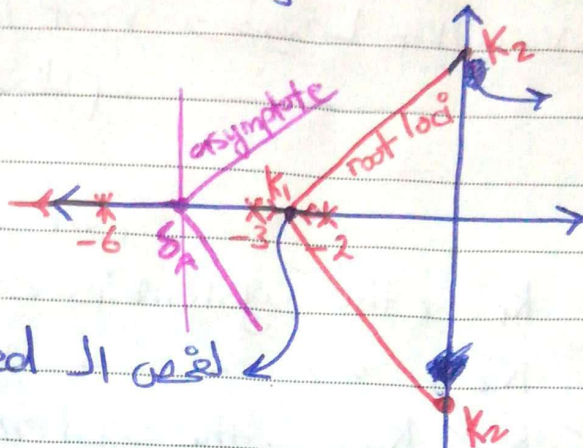 K2
asymptote
root loci
K1
-6
δA
-3
-2
K2